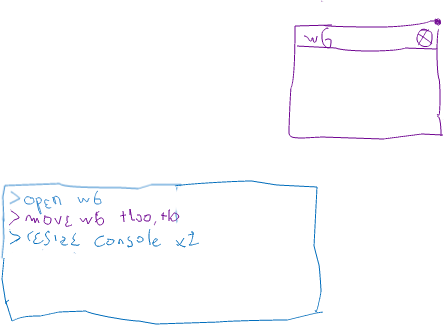 w6
>open w6
>move w6 +100,+10
>resize console x2